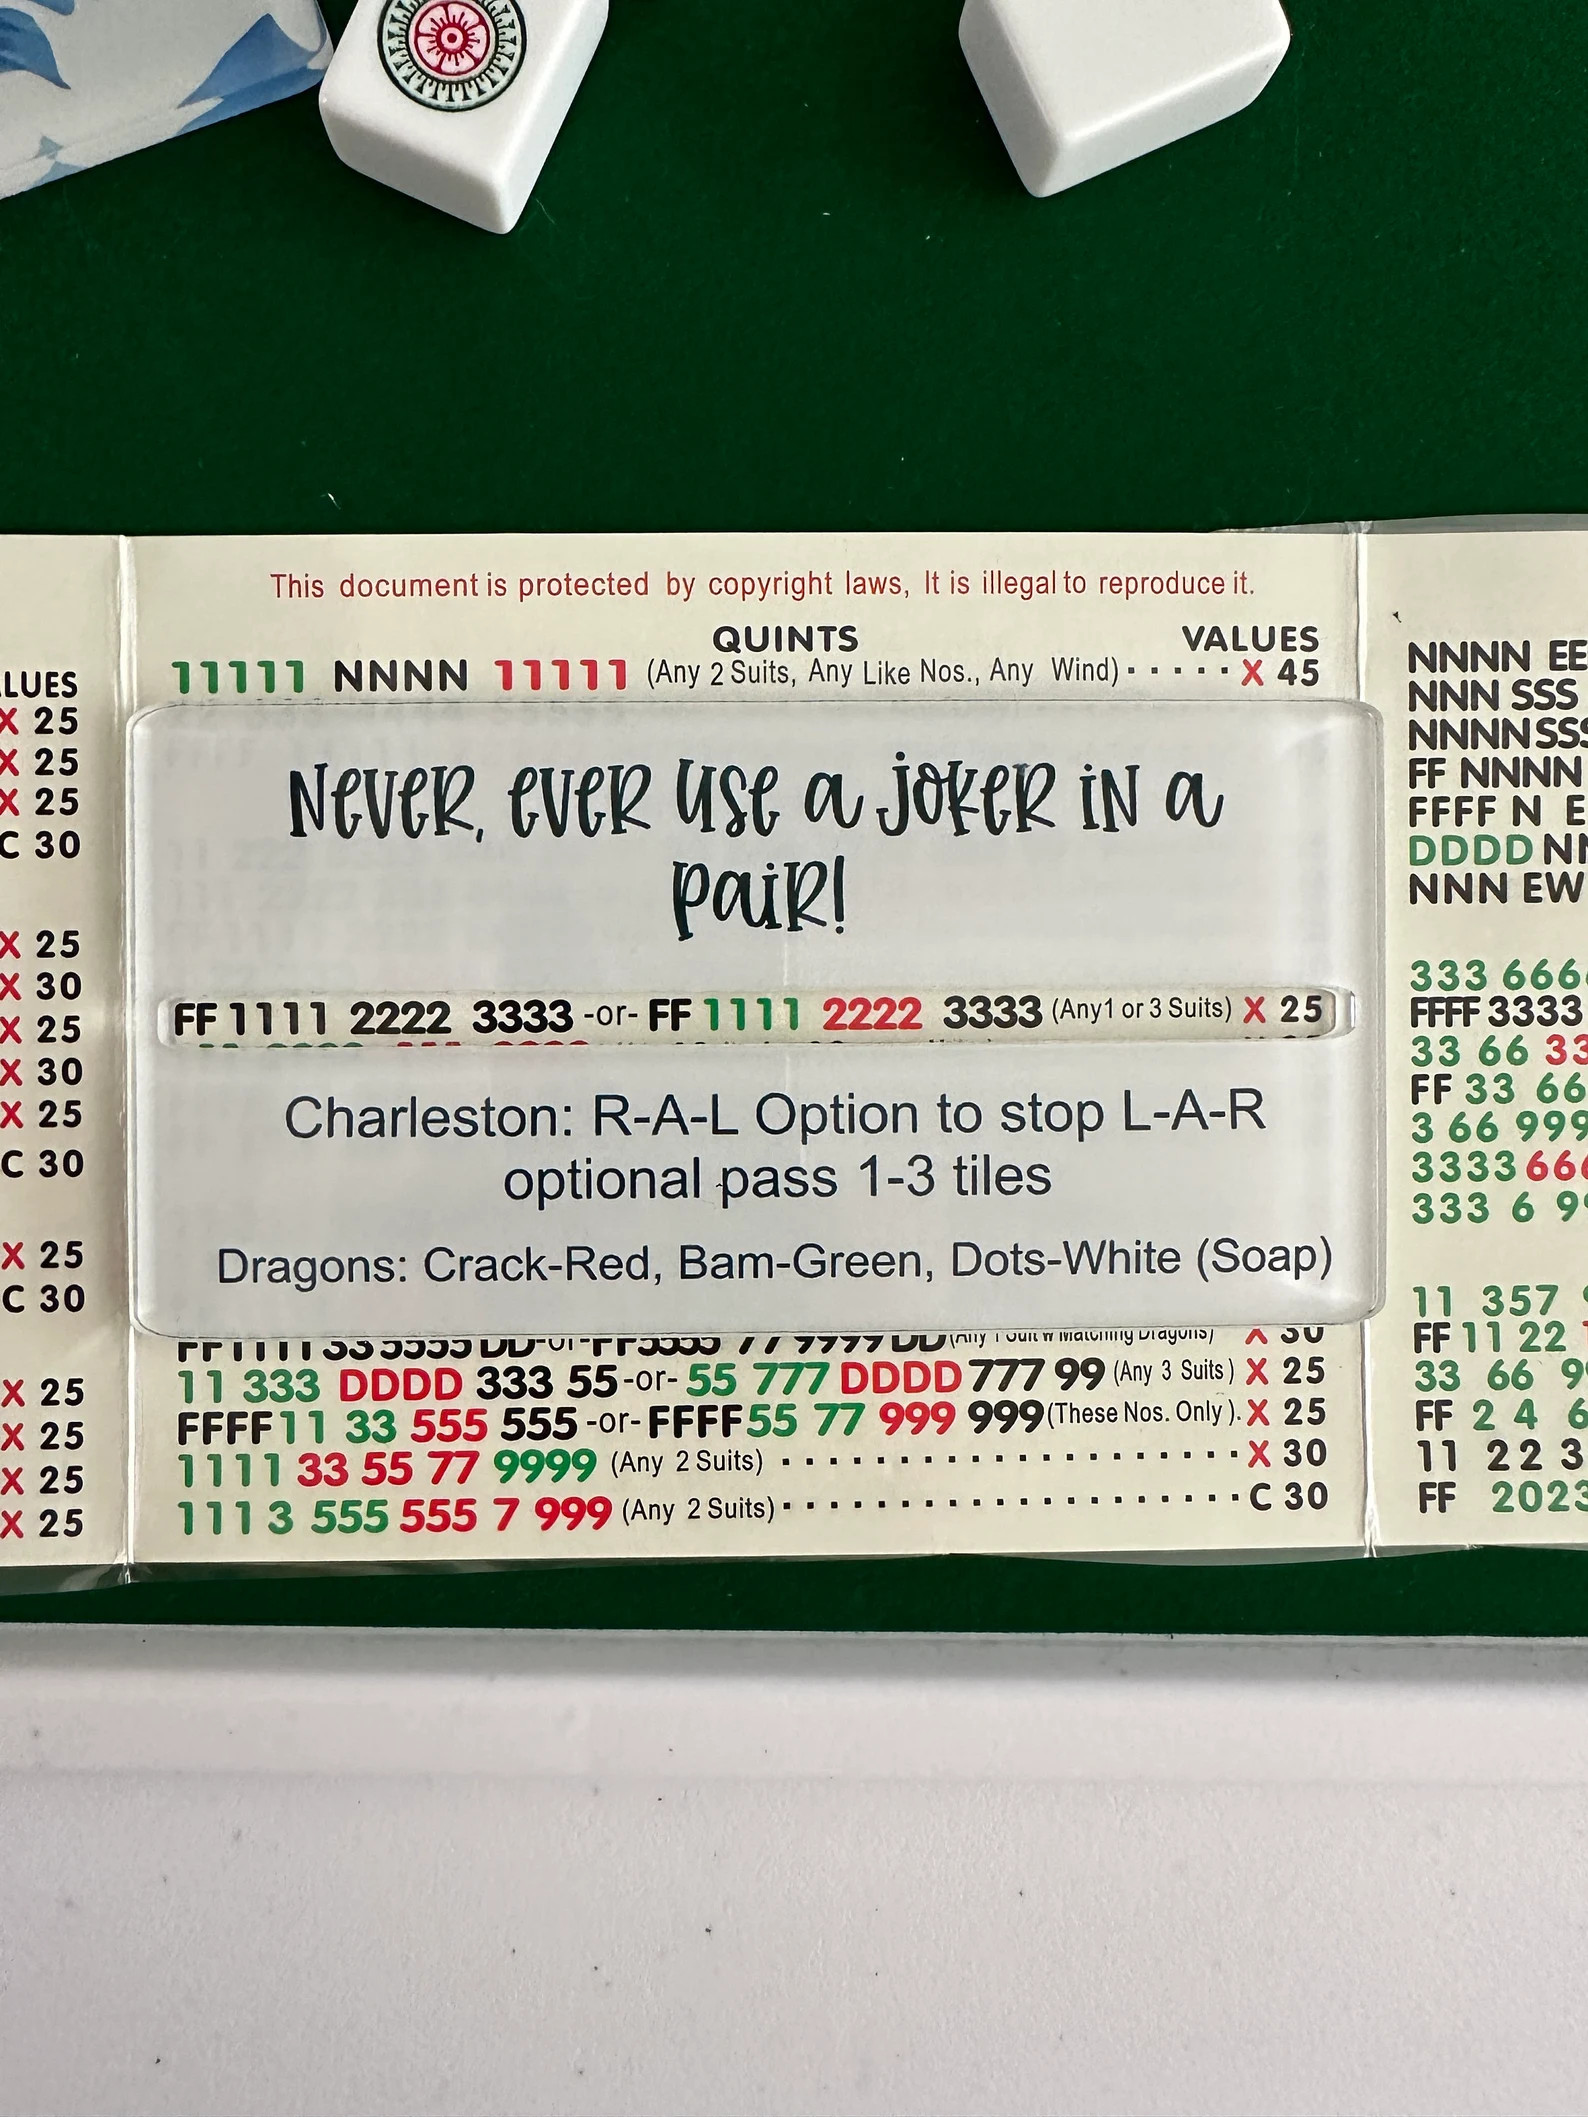 This document is protected by copyright laws, It is illegal to reproduce it.
QUINTS VALUES
11111 NNNN 11111 (Any 2 Suits, Any Like Nos., Any Wind) X 45
Never, ever use a joker in a
pair!
FF 1111 2222 3333 -or- FF 1111 2222 3333 (Any 1 or 3 Suits) X 25
Charleston: R-A-L Option to stop L-A-R
optional pass 1-3 tiles
Dragons: Crack-Red, Bam-Green, Dots-White (Soap)
FF 1111 33 5555 DD -or- FF 5555 77 9999 DD (Any 1 Suit w Matching Dragons) X 30
11 333 DDDD 333 55 -or- 55 777 DDDD 777 99 (Any 3 Suits) X 25
FFFF 11 33 555 555 -or- FFFF 55 77 999 999 (These Nos. Only). X 25
1111 33 55 77 9999 (Any 2 Suits) X 30
111 3 555 555 7 999 (Any 2 Suits) C 30
X 25
X 25
X 25
C 30
X 25
X 30
X 25
X 30
X 25
C 30
X 25
C 30
X 25
X 25
X 25
X 25
NNNN EE
NNN SSS
NNNN SSS
FF NNNN
FFFF N E
DDDD NN
NNN EW
333 666
FFFF 3333
33 66 33
FF 33 66
3 66 999
3333 666
333 6 99
11 357
FF 11 22
33 66 9
FF 2 4 6
11 22 3
FF 2023